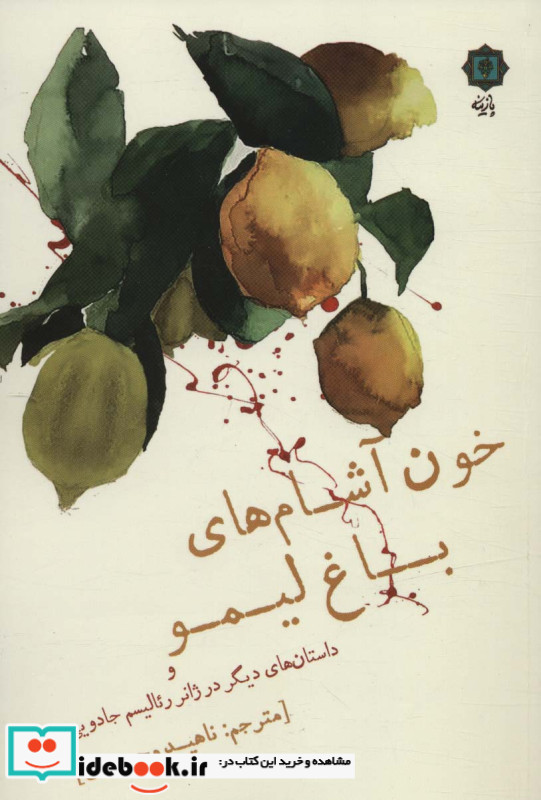 پازینه
خون آشام‌های
باغ لیمو
و
داستان‌های دیگر در ژانر رئالیسم جادویی
[مترجم: ناهید
مشاهده و خرید این کتاب در:
idebook.ir